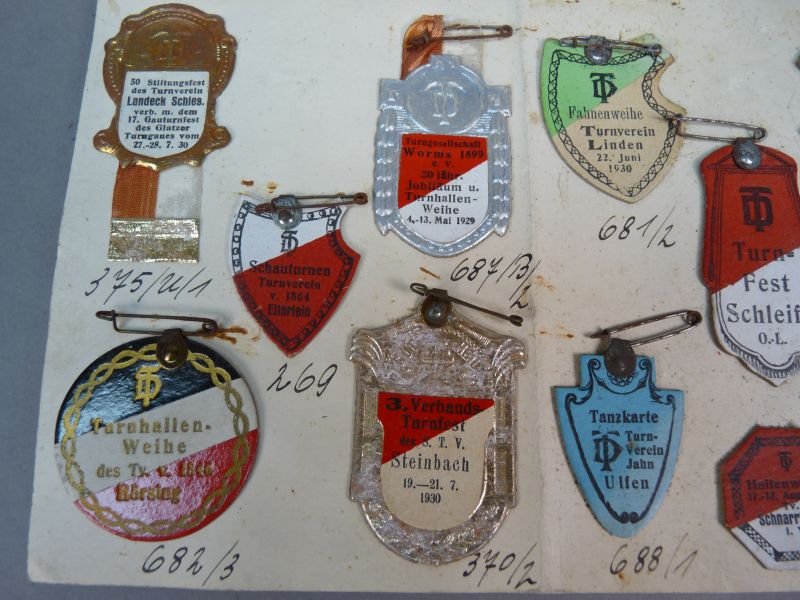 50 Stiftungsfest
des Turnverein
Landeck Schles.
verb. m. dem
17. Gauturnfest
des Glatzer
Turngaues vom
27.-28. 7. 30
375/U/1
Schauturnen
Turnverein
v. 1864
Elterlein
269
Turngesellschaft
Worms 1899
e. V.
30 jähr.
Jubiläum u.
Turnhallen-
Weihe
4.-13. Mai 1929
687/B/2
Fahnenweihe
Turnverein
Linden
22. Juni
1930
681/2
Turn-
Fest
Schleif
O.-L.
Turnhallen-
Weihe
des Tv. v.
682/3
3. Verbands-
Turnfest
des S. T. V.
Steinbach
19.—21. 7.
1930
370/2
Tanzkarte
Turn-
verein
Jahn
Ulfen
688/1
Hallenw
Schnarr